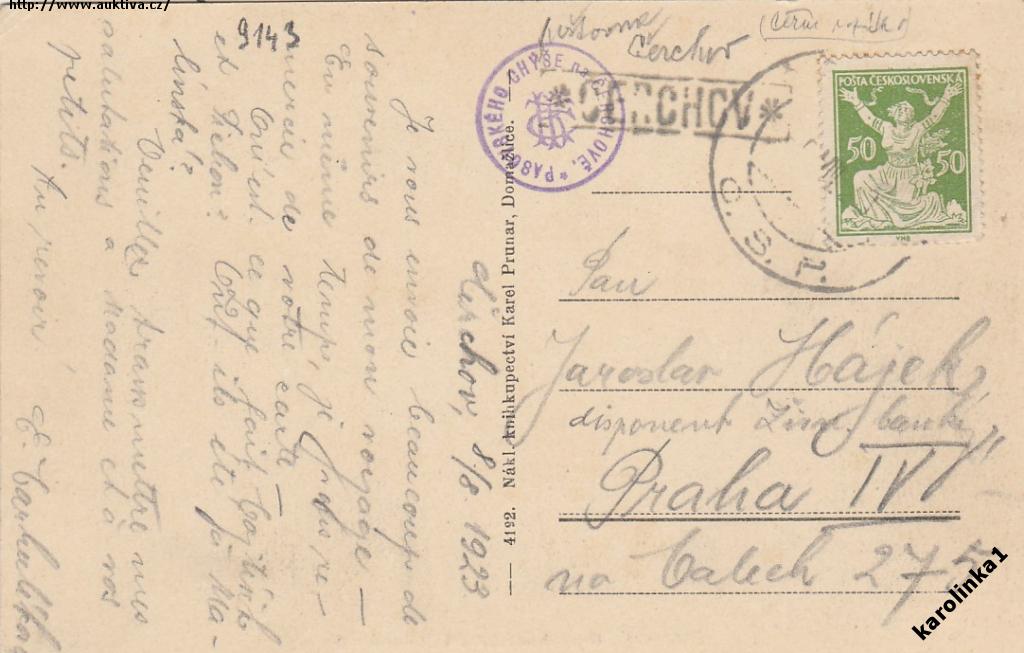 http://www.auktiva.cz/
9143
Čerchov
PASOVSKÉHO CHÝŠE na ČERCHOVĚ.
*CERCHOV*
Č. S.
POŠTA ČESKOSLOVENSKÁ
50 50
VHB
Čerchov, 8/8 1923
Je vous envoie beaucoup de
souvenirs de mon voyage —
En même temps, je vous re-
mercie de votre carte —
Qu'est-ce que fait
et ont ils été ja Ma-
Veuillez transmettre mes
salutations à Madame et à vos
petits.
Au revoir!
4192. Nákl. knihkupectví Karel Prunar, Domažlice.
Pan
Jaroslav Hájek,
disponent Živn. banky
Praha IV
na 275
karolinka1